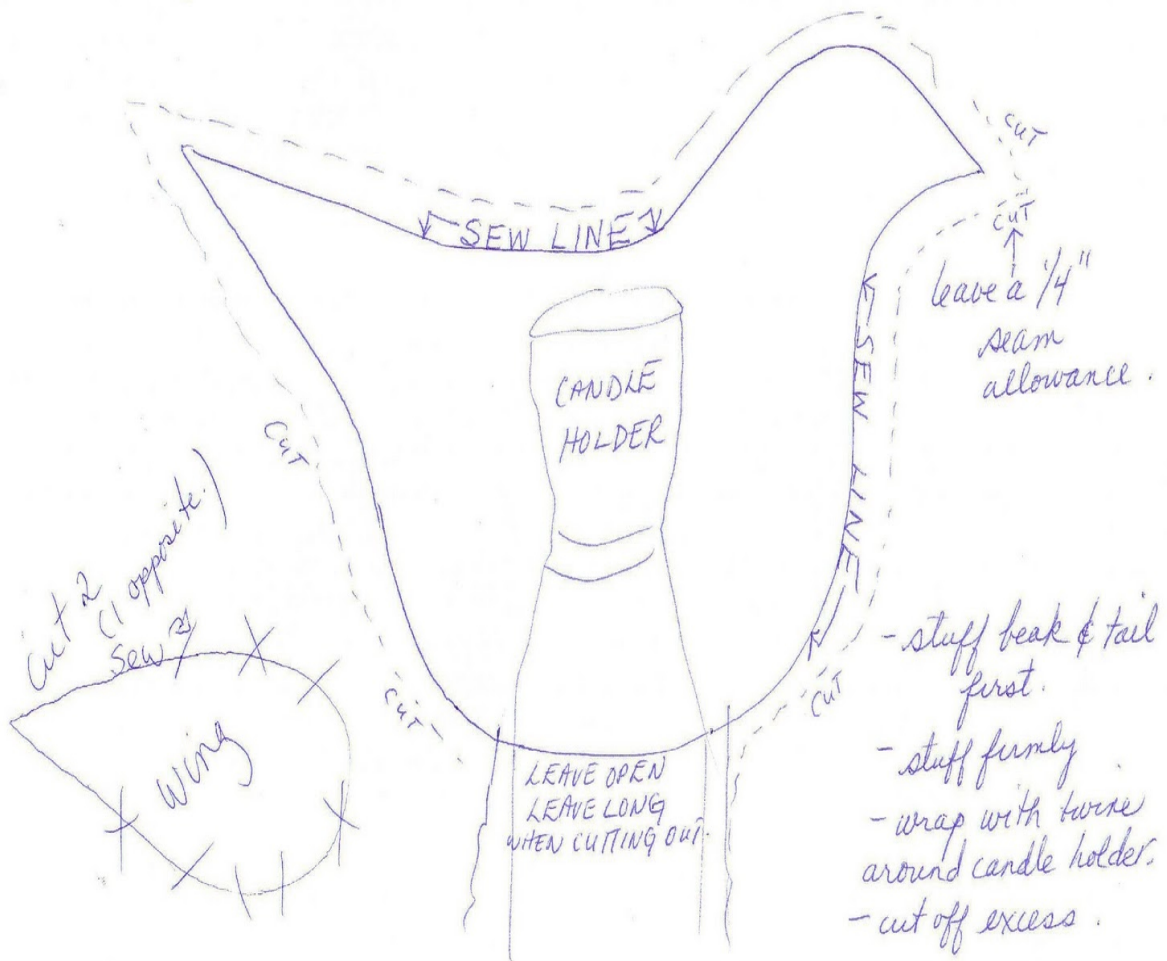 CUT
SEW LINE
CUT
leave a 1/4"
seam
allowance.
SEW LINE
CANDLE
HOLDER
CUT
Cut 2
(1 opposite.)
Sew
wing
CUT
CUT
LEAVE OPEN
LEAVE LONG
WHEN CUTTING OUT.
- stuff beak & tail
first.
- stuff firmly
- wrap with twine
around candle holder.
- cut off excess.